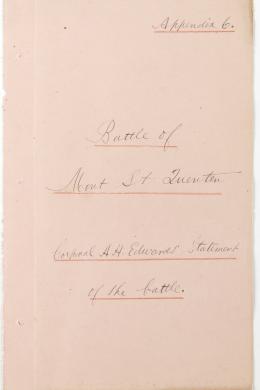 Appendix 6.
Battle of
Mont St Quenten
Corporal A.H. Edwards' Statement
of the battle.